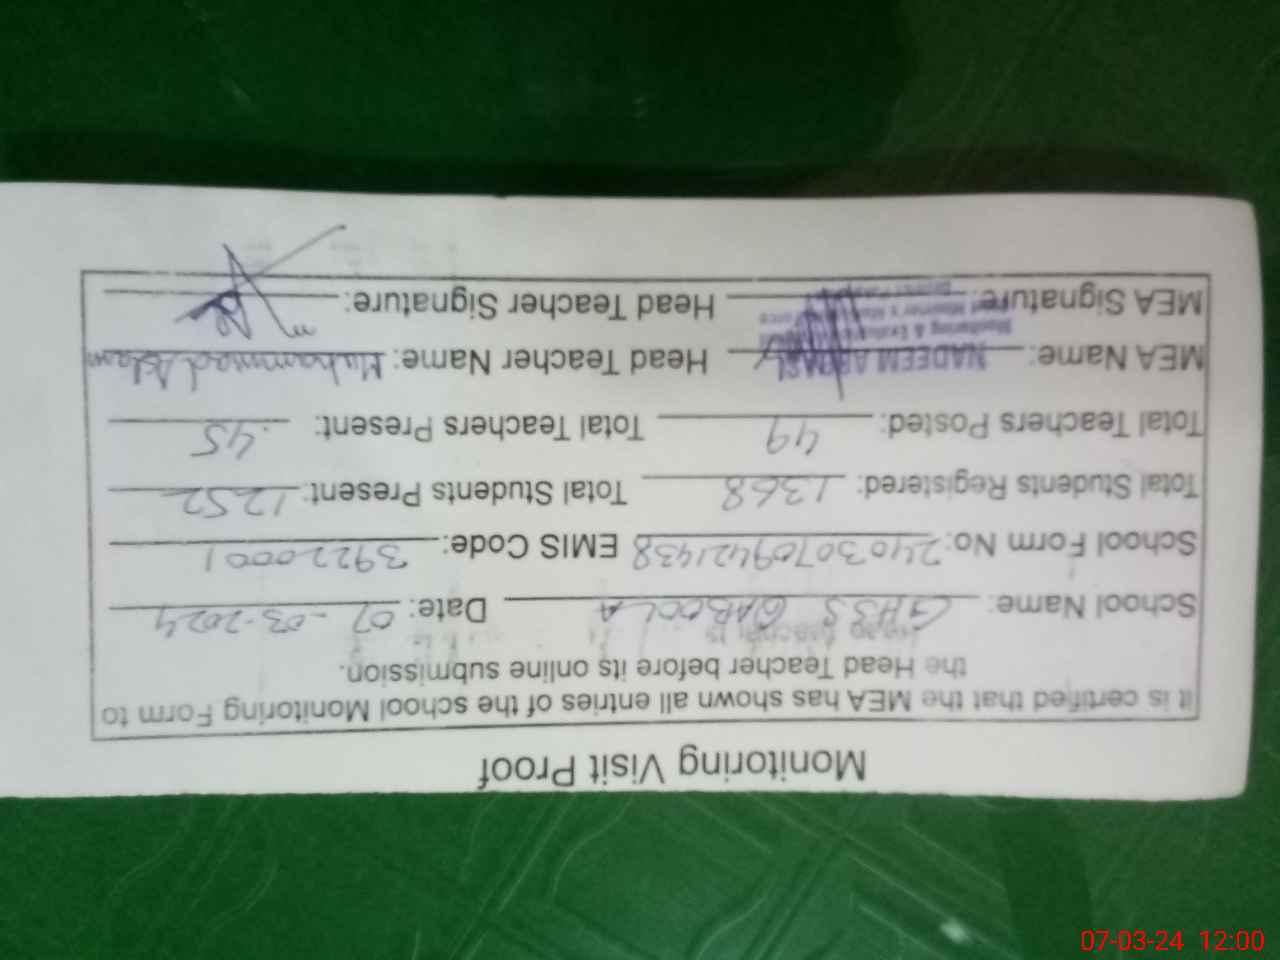 Monitoring Visit Proof
It is certified that the MEA has shown all entries of the school Monitoring Form to
the Head Teacher before its online submission.
School Name: GHSS QABOOLA Date: 07-03-2024
School Form No: 24030709421438 EMIS Code: 39220001
Total Students Registered: 1368 Total Students Present: 1252
Total Teachers Posted: 49 Total Teachers Present: 45
MEA Name: NADEEM ABBASI Head Teacher Name: Muhammad Aslam
Monitoring &
MEA Signature: Head Teacher Signature:
07-03-24 12:00